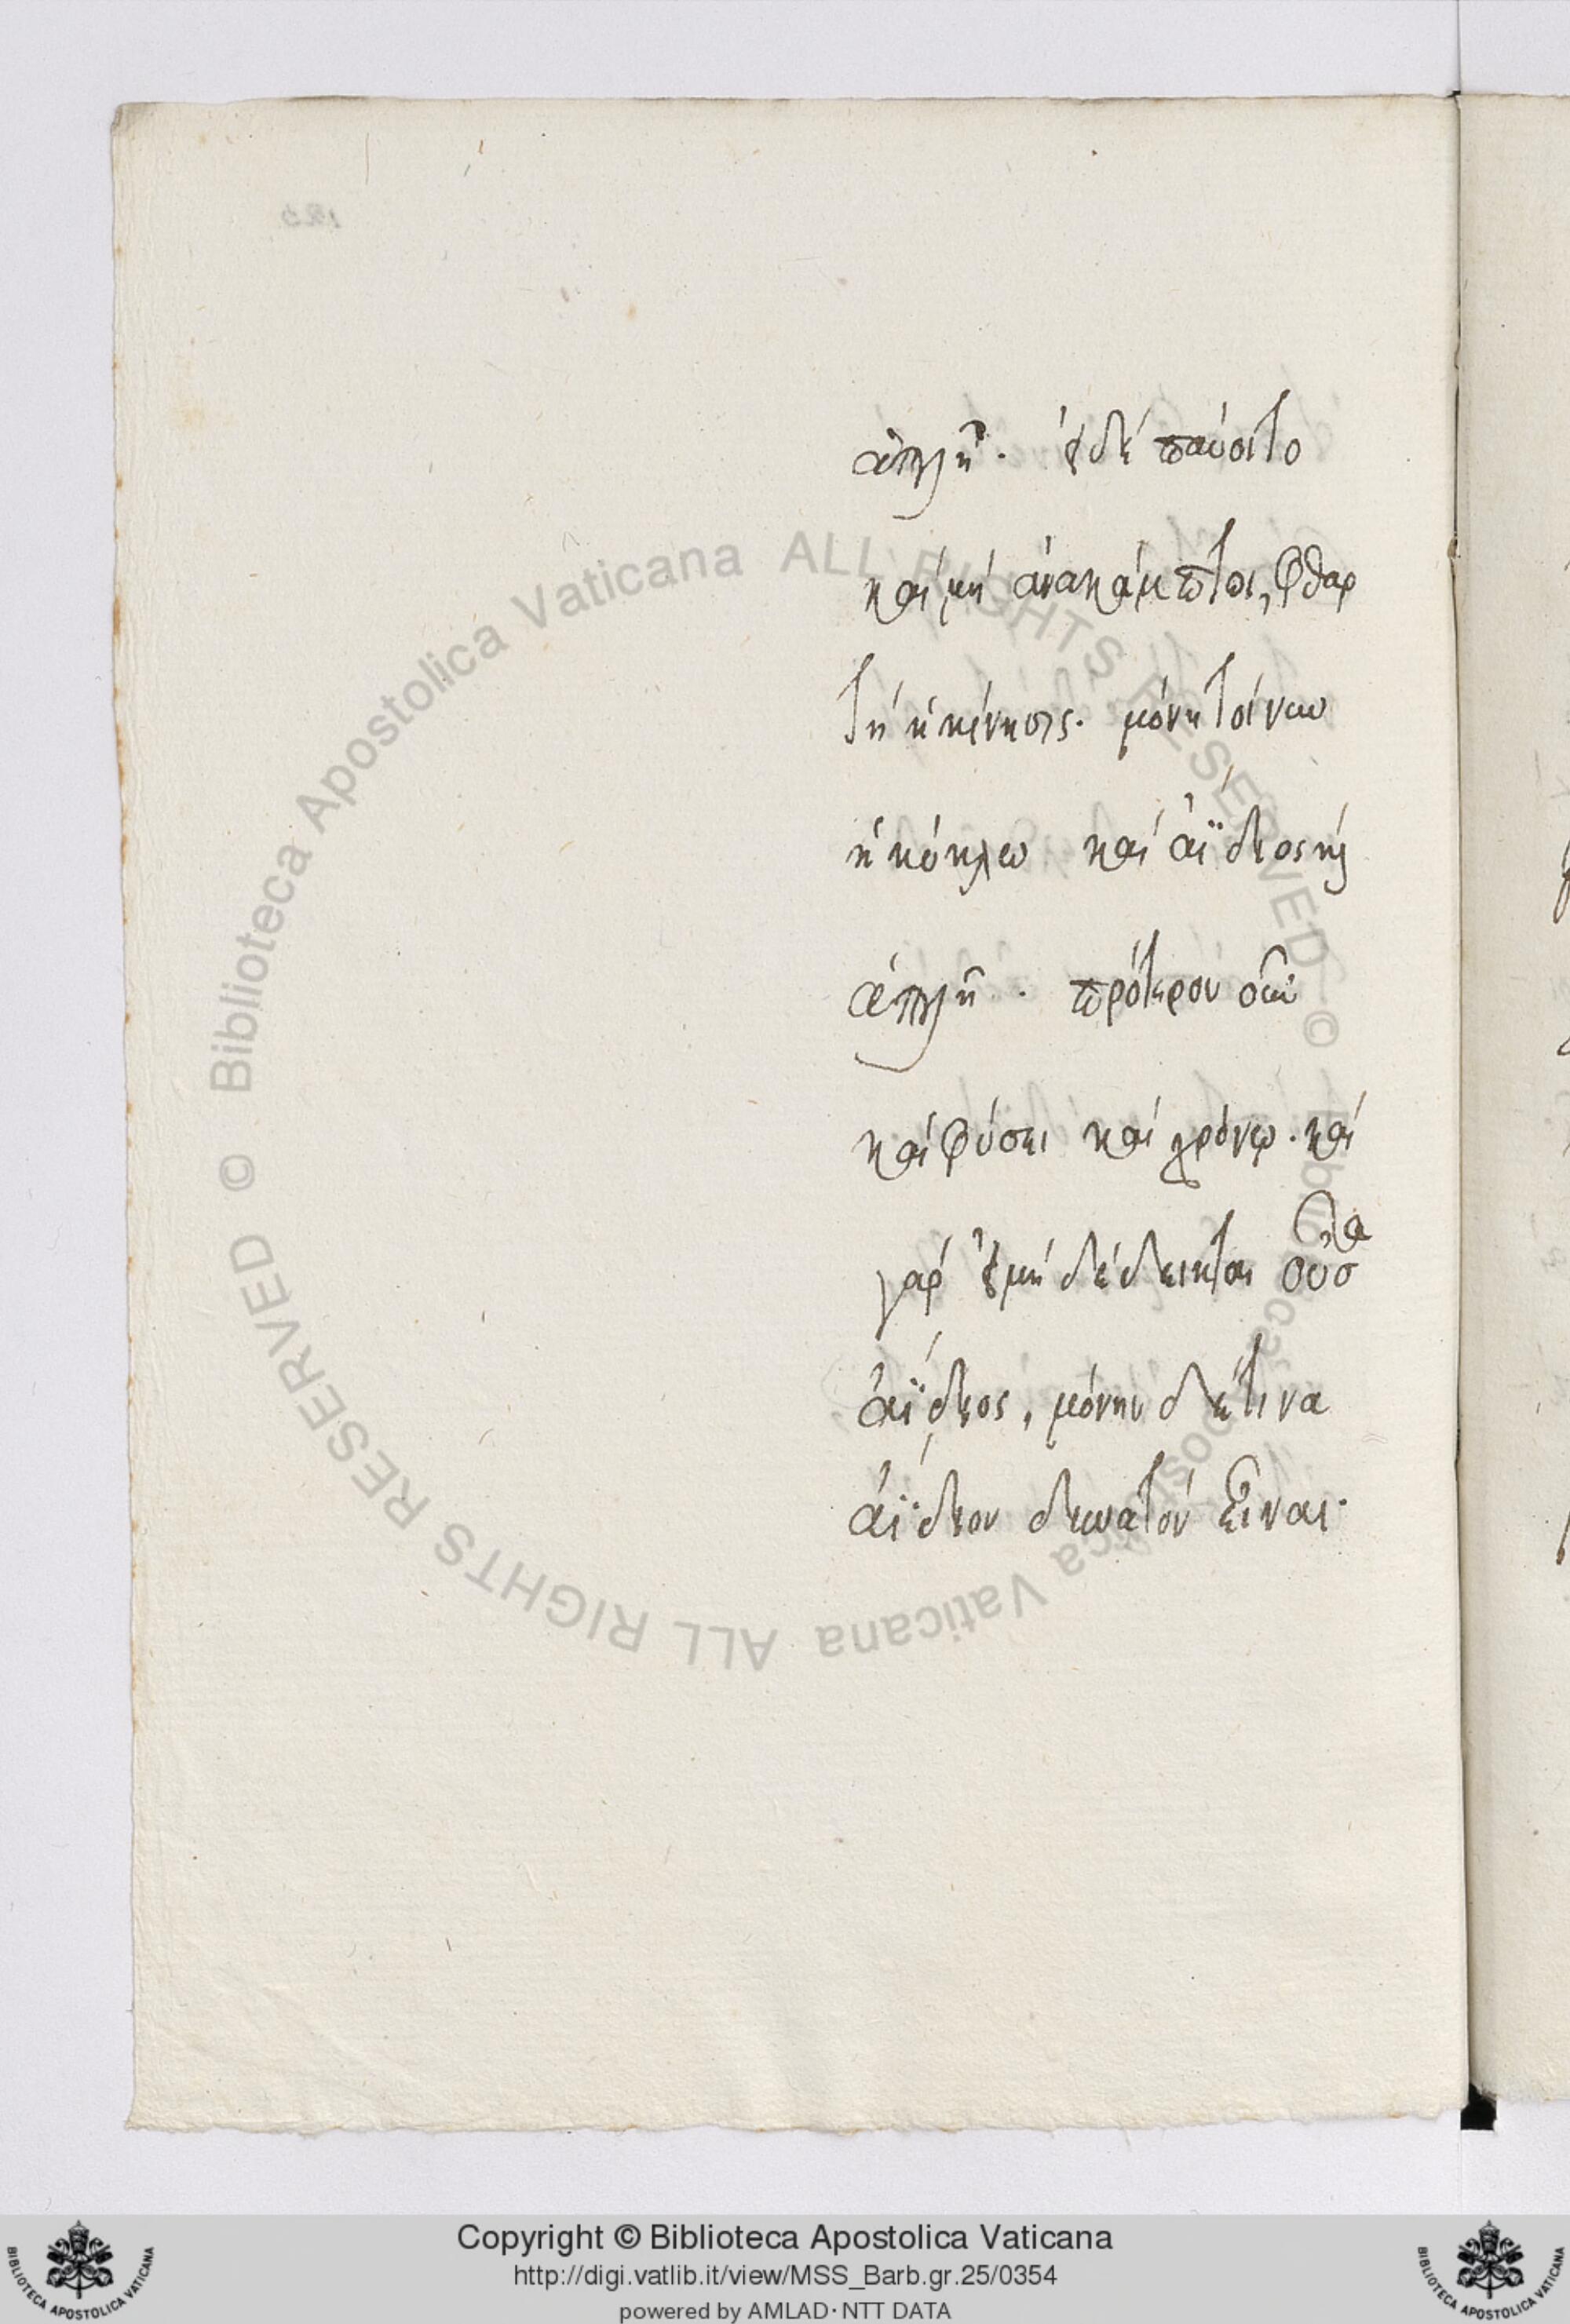 ἁπλῆ. εἰ δὲ παύοιτο
καὶ μὴ ἀνακάμπτοι, φθαρ
τὴ ἡ κίνησις. μόνη τοίνυν
ἡ κύκλω καὶ ἀΐδιος καὶ
ἁπλῆ. πρότερον οὖν
καὶ φύσει καὶ χρόνῳ. καὶ
γὰρ εἰ μὴ δέδεικται οὖσα
ἀΐδιος, μόνην δέ τινα
ἀΐδιον δυνατὸν εἶναι.
© Biblioteca Apostolica Vaticana ALL RIGHTS RESERVED © Biblioteca Apostolica Vaticana ALL RIGHTS RESERVED
BIBLIOTECA APOSTOLICA VATICANA
Copyright © Biblioteca Apostolica Vaticana
http://digi.vatlib.it/view/MSS_Barb.gr.25/0354
powered by AMLAD·NTT DATA
BIBLIOTECA APOSTOLICA VATICANA